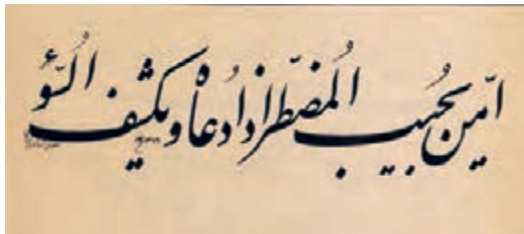 امّن یجیب المُضطّر اذا دُعاه و یکشف السّؤ